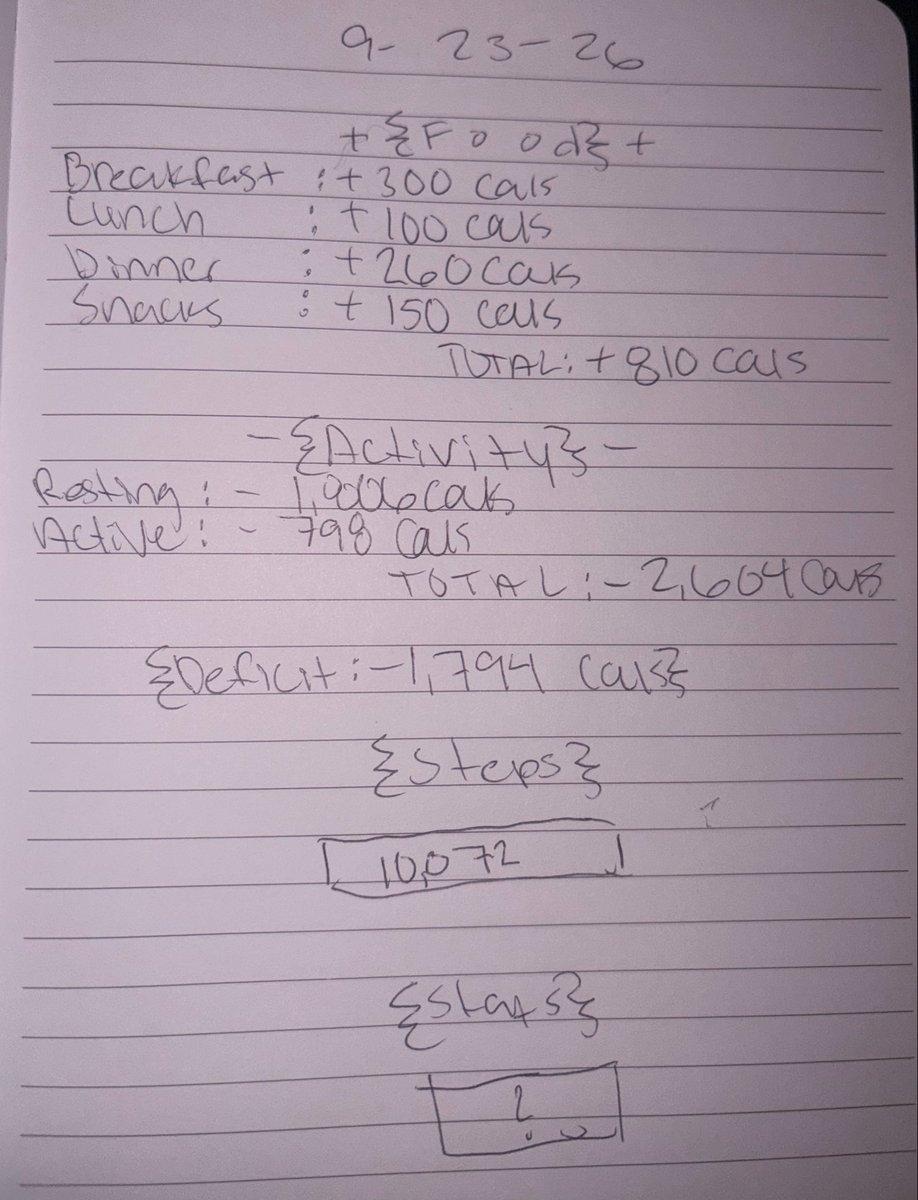 9- 23-26
+ {Food} +
Breakfast : + 300 cals
Lunch : + 100 cals
Dinner : + 260 cals
Snacks : + 150 cals
TOTAL: + 810 cals
- {Activity} -
Resting : - 1,806 cals
Active : - 798 cals
TOTAL : - 2,604 cals
{Deficit : -1,794 cals}
{Steps}
10,072
{Stats}
?